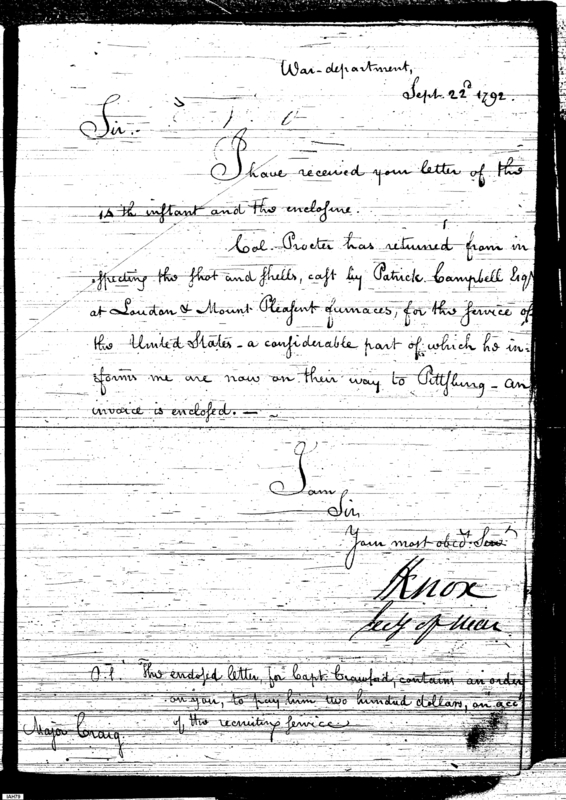 War-department,
Sept. 22d 1792.
Sir.
I have received your letter of the
15th instant and the enclosure.
Col. Procter has returned from in
specting the shot and shells, cast by Patrick Campbell Esqr
at Loudon & Mount Pleasent furnaces, for the service of
the United States - a considerable part of which he in-
forms me are now on their way to Pittsburg - an
invoice is enclosed. —
I am
Sir,
Your most obedt. Servt.
HKnox
Secy of War
P.S. The enclosed letter, for Capt. Crawford, contains an order
on you, to pay him two hundred dollars, on acct
of the recruiting service
Major Craig.
IAH79